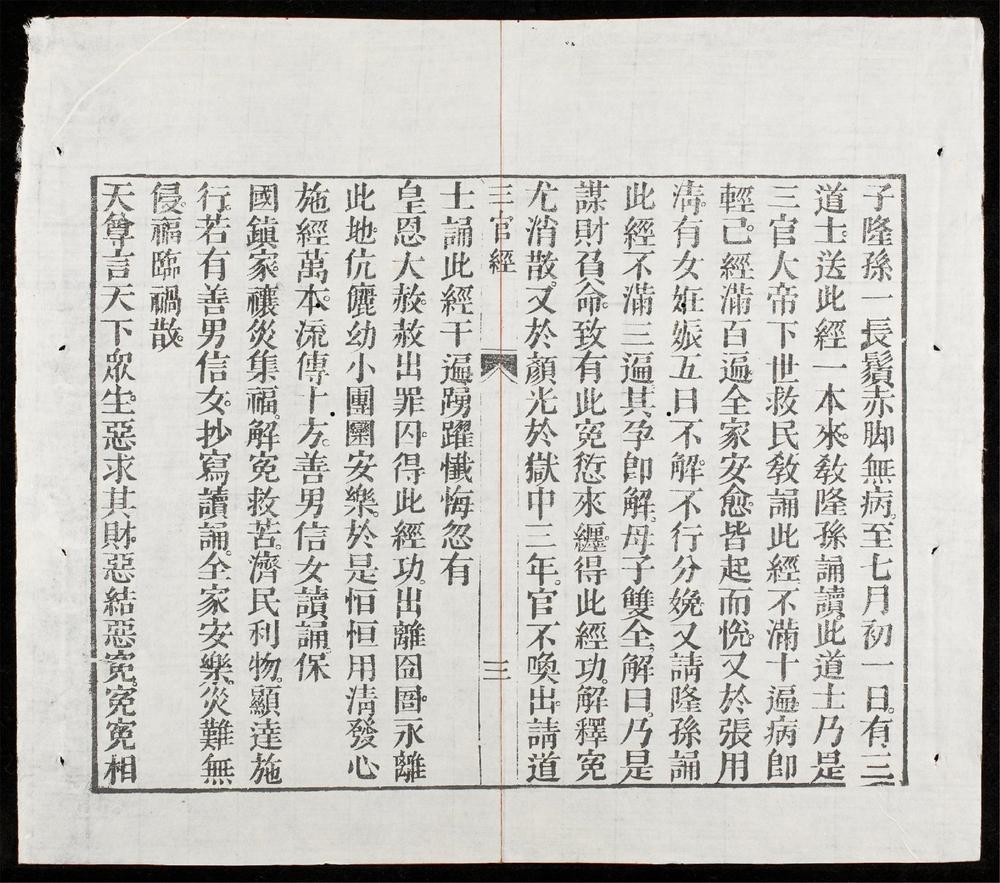 子隆孫一長鬚赤脚無病至七月初一日有三
道士送此經一本來教隆孫誦讀此道士乃是
三官大帝下世救民教誦此經不滿十遍病即
輕已經滿百遍全家安愈皆起而悅又於張用
清有女姙娠五日不解不行分娩又請隆孫誦
此經不滿三遍其孕卽解母子雙全解曰乃是
謀財負命致有此寃愆來纏得此經功解釋寃
尤消散又於顏光於獄中三年官不喚出請道
三官經 三
士誦此經千遍踴躍懺悔忽有
皇恩大赦赦出罪囚得此經功出離囹圄永離
此地伉儷幼小團圞安樂於是恒恒用清發心
施經萬本流傳十方善男信女讀誦保
國鎮家禳災集福解寃救苦濟民利物顯達施
行若有善男信女抄寫讀誦全家安樂災難無
侵福臨禍散
天尊言天下衆生惡求其財惡結惡寃寃寃相